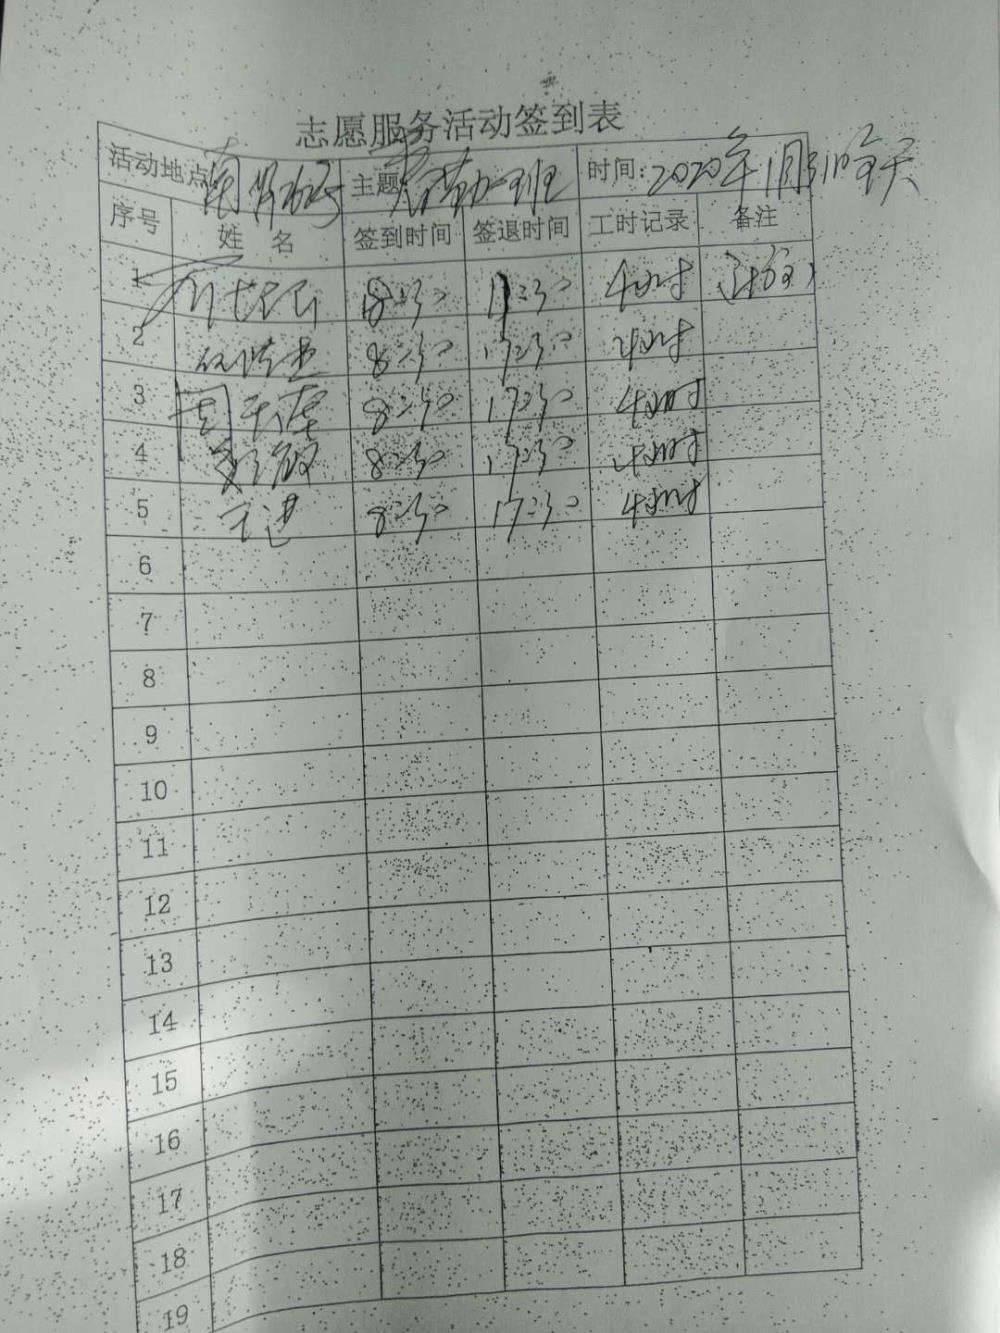 志愿服务活动签到表
活动地点 主题 班 时间:2020年1月31日全天
序号 姓 名 签到时间 签退时间 工时记录 备注
1 8:30 17:30 4小时
2 8:30 17:30 4小时
3 周 8:30 17:30 4小时
4 8:30 17:30 4小时
5 王进 8:30 17:30 4小时
6
7
8
9
10
11
12
13
14
15
16
17
18
19